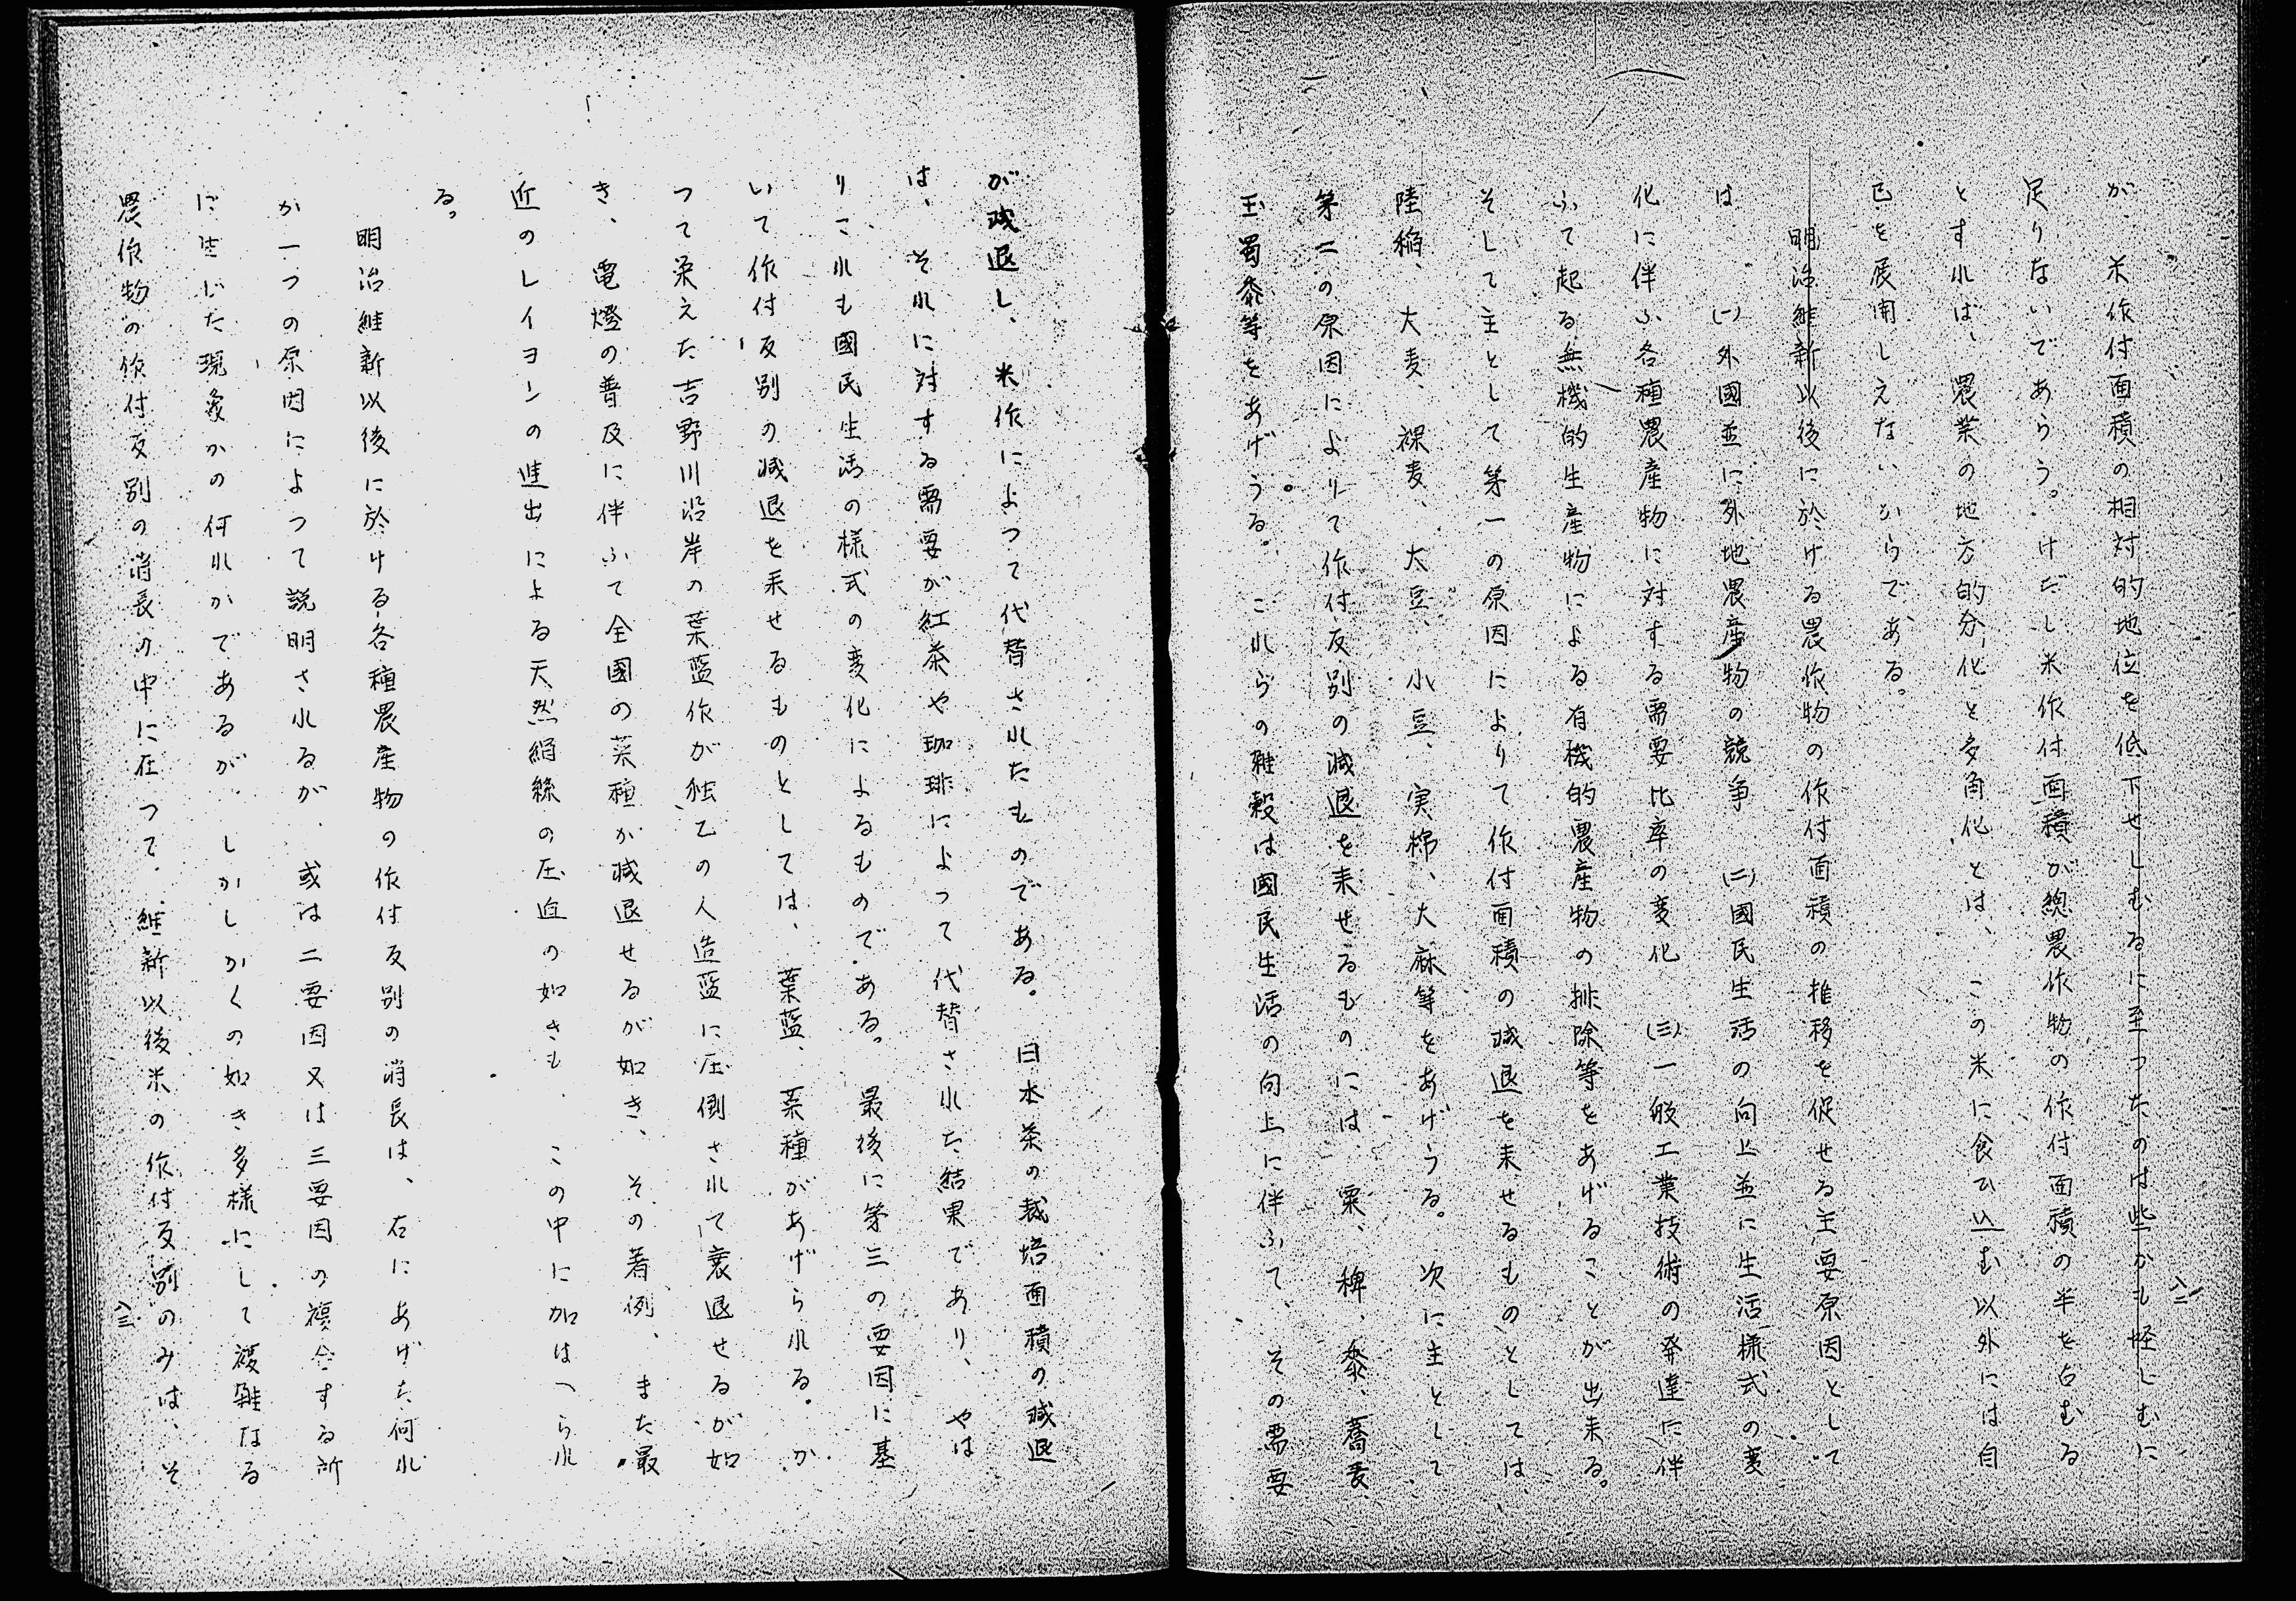 八二
が、米作付面積の相対的地位を低下せしむるに至つたのは些かも怪しむに
足りないであらう。けだし米作付面積が總農作物の作付面積の半を占むる
とすれば、農業の地方的分化と多角化とは、この米に食ひ込む以外には自
己を展開しえないからである。
明治維新以後に於ける農作物の作付面積の推移を促せる主要原因として
は、(一)外國並に外地農産物の競争 (二)國民生活の向上並に生活様式の変
化に伴ふ各種農産物に対する需要比率の変化 (三)一般工業技術の発達に伴
ふて起る無機的生産物による有機的農産物の排除等をあげることが出来る。
そして主として第一の原因によりて作付面積の減退を来せるものとしては、
陸稲、大麦、裸麦、大豆、小豆、実棉、大麻等をあげうる。次に主として
第二の原因によりて作付反別の減退を来せるものには、粟、稗、黍、蕎麦、
玉蜀黍等をあげうる。これらの雑穀は國民生活の向上に伴ふて、その需要
が減退し、米作によつて代替されたものである。日本茶の栽培面積の減退
は、それに対する需要が紅茶や珈琲によつて代替された結果であり、やは
りこれも國民生活の様式の変化によるものである。最後に第三の要因に基
いて作付反別の減退を来せるものとしては、葉藍、菜種があげられる。か
つて栄えた吉野川沿岸の葉藍作が独乙の人造藍に圧倒されて衰退せるが如
き、電燈の普及に伴ふて全國の菜種が減退せるが如き、その着例、また最
近のレイヨンの進出による天然絹絲の圧迫の如きも、この中に加はへられ
る。
明治維新以後に於ける各種農産物の作付反別の消長は、右にあげた何れ
か一つの原因によつて説明されるが、或は二要因又は三要因の複合する所
に生じた現象かの何れかであるが、しかしかくの如き多様にして複雑なる
農作物の作付反別の消長の中に在つて、維新以後米の作付反別のみは、そ
八三